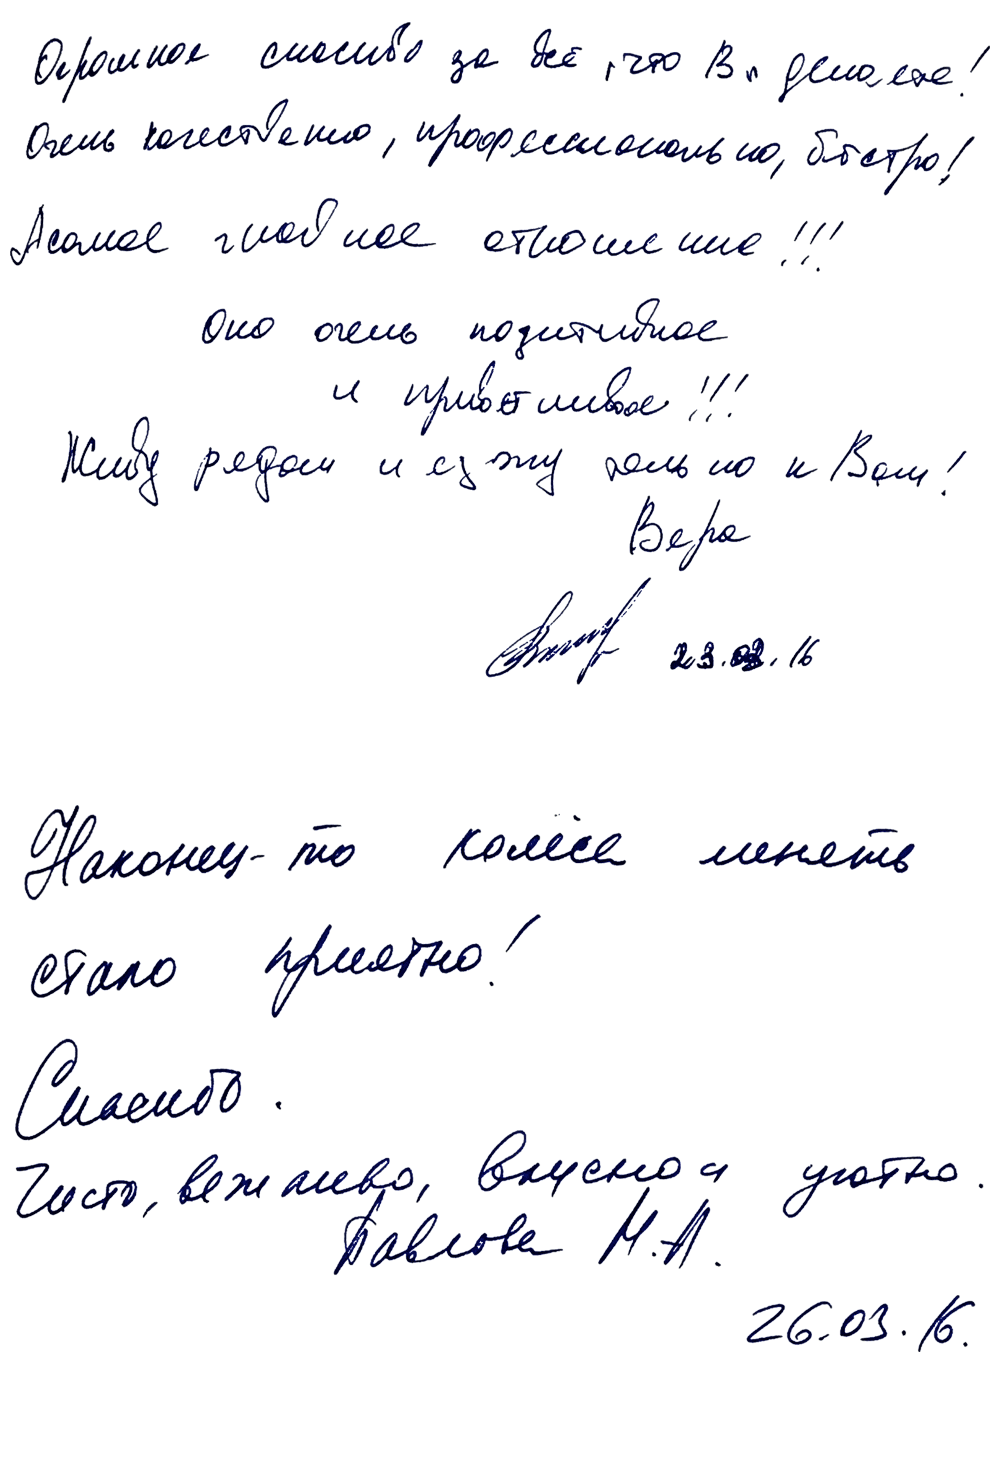 Огромное спасибо за всё, что Вы делаете!
Очень качественно, профессионально, быстро!
А самое главное отношение!!!
Оно очень позитивное
и приветливое!!!
Живу рядом и езжу только к Вам!
Вера
23.03.16
Наконец-то колёса менять
стало приятно!
Спасибо.
Чисто, вежливо, вкусно и уютно.
Павлова М.А.
26.03.16.